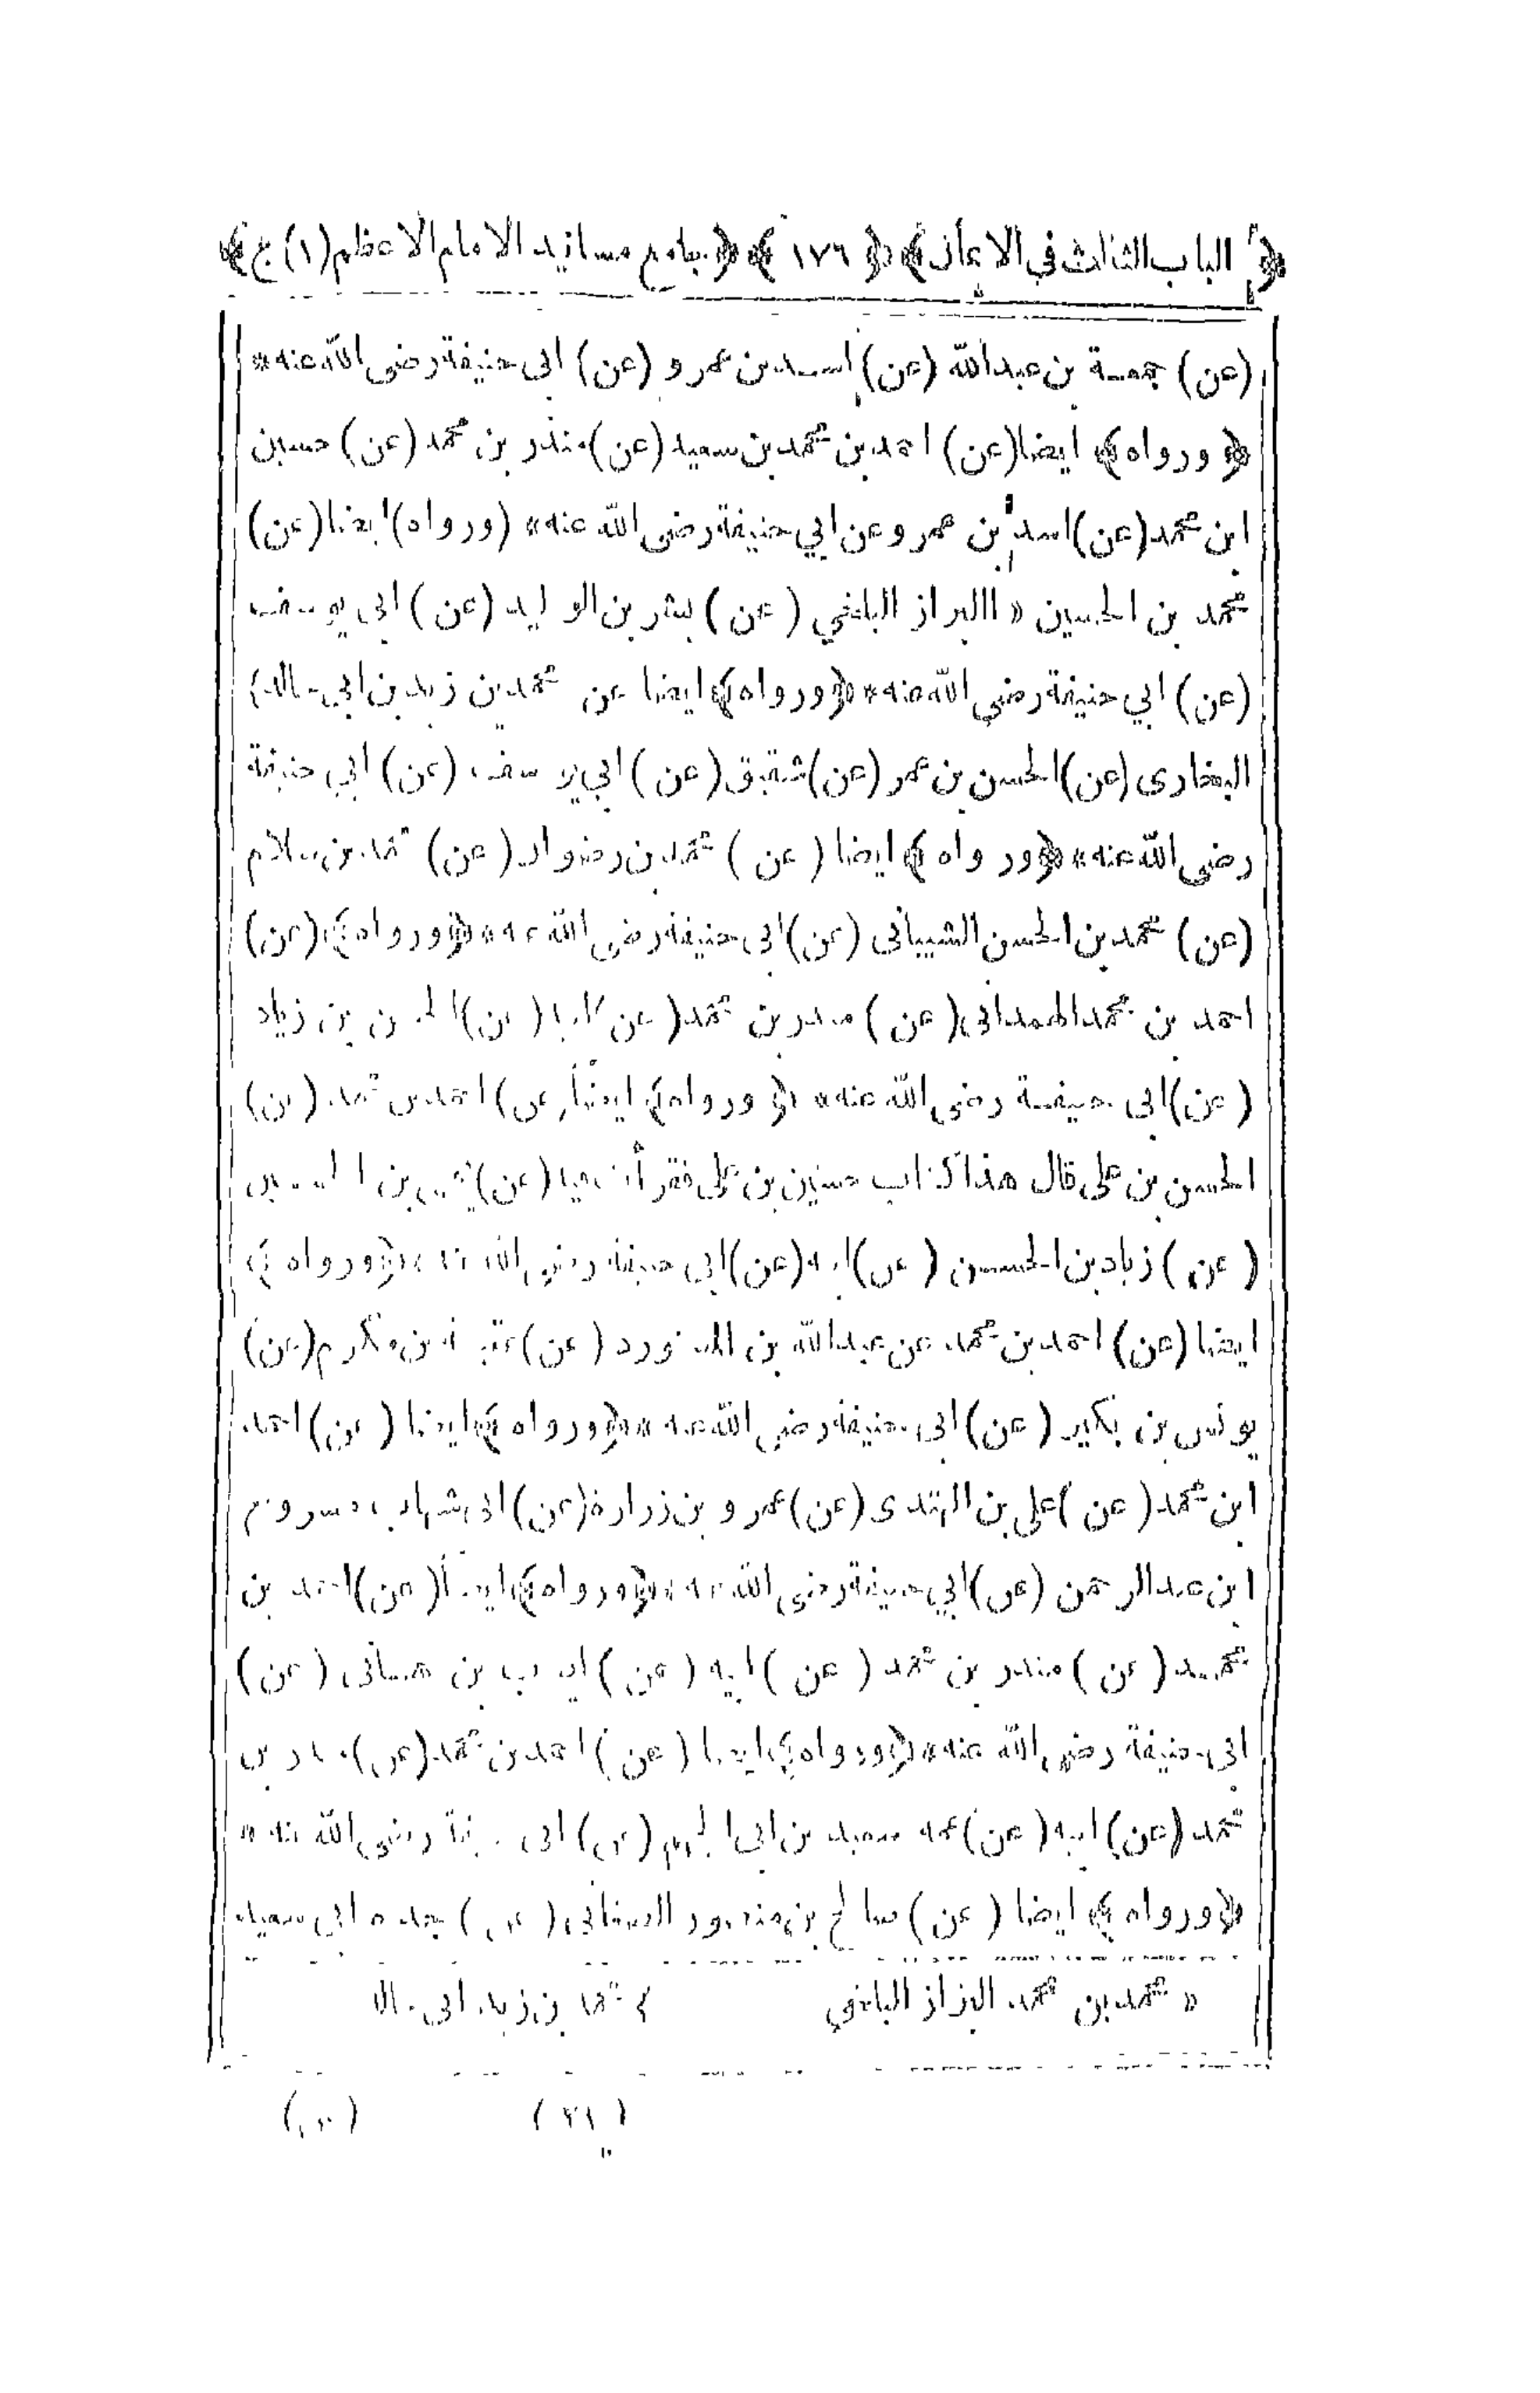 ﴿ الباب الثالث في الايمان ﴾ ﴿ ١٧٦ ﴾ ﴿ جامع مسانيد الامام الاعظم (١) ج ﴾
(عن) جمعة بن عبدالله (عن) اسد بن عمرو (عن) ابى حنيفة رضى الله عنه *
﴿ ورواه ﴾ ايضا (عن) احمد بن محمد بن سعيد (عن) منذر بن محمد (عن) حسين
ابن محمد (عن) اسد بن عمرو عن ابي حنيفة رضى الله عنه * (ورواه) ايضا (عن)
محمد بن الحسين « البزاز البلخي (عن) بشر بن الوليد (عن) ابى يوسف
(عن) ابي حنيفة رضي الله عنه * ﴿ ورواه ﴾ ايضا عن محمد بن زيد بن ابي
البخارى (عن) الحسن بن عمر (عن) شقيق (عن) ابي يوسف (عن) ابي حنيفة
رضى الله عنه * ﴿ ورواه ﴾ ايضا (عن) محمد بن رضوان (عن) محمد بن سلام
(عن) محمد بن الحسن الشيبانى (عن) ابى حنيفة رضي الله عنه * ﴿ ورواه ﴾ (عن)
احمد بن محمد الهمدانى (عن) منذر بن محمد (عن) (عن) الحسن بن زياد
(عن) ابى حنيفة رضى الله عنه * ﴿ ورواه ﴾ ايضاً (عن) احمد بن محمد (عن)
الحسن بن على قال هذا كتاب حسين بن على فقرأت فيه (عن) يحيى بن
(عن) زياد بن الحسن (عن) ابيه (عن) ابى حنيفة رضي الله عنه * ﴿ ورواه ﴾
ايضا (عن) احمد بن محمد عن عبدالله بن (عن) عقبة بن مكرم (عن)
يونس بن بكير (عن) ابى حنيفة رضي الله عنه * ﴿ ورواه ﴾ ايضا (عن) احمد
ابن محمد (عن) على بن (عن) عمرو بن زرارة (عن) ابى شهاب
ابن عبدالرحمن (عن) ابي حنيفة رضي الله عنه * ﴿ ورواه ﴾ ايضاً (عن) احمد بن
محمد (عن) منذر بن محمد (عن) ابيه (عن) ايوب بن هانى (عن)
ابى حنيفة رضي الله عنه * ﴿ ورواه ﴾ ايضا (عن) احمد بن محمد (عن) منذر بن
محمد (عن) ابيه (عن) عمه سعيد بن ابى الجهم (عن) ابى حنيفة رضى الله عنه *
﴿ ورواه ﴾ ايضا (عن) صالح بن منصور الصغانى (عن) جده ابى سعيد
« محمد بن محمد البزاز البلخي محمد بن زيد ابى
(٢١)